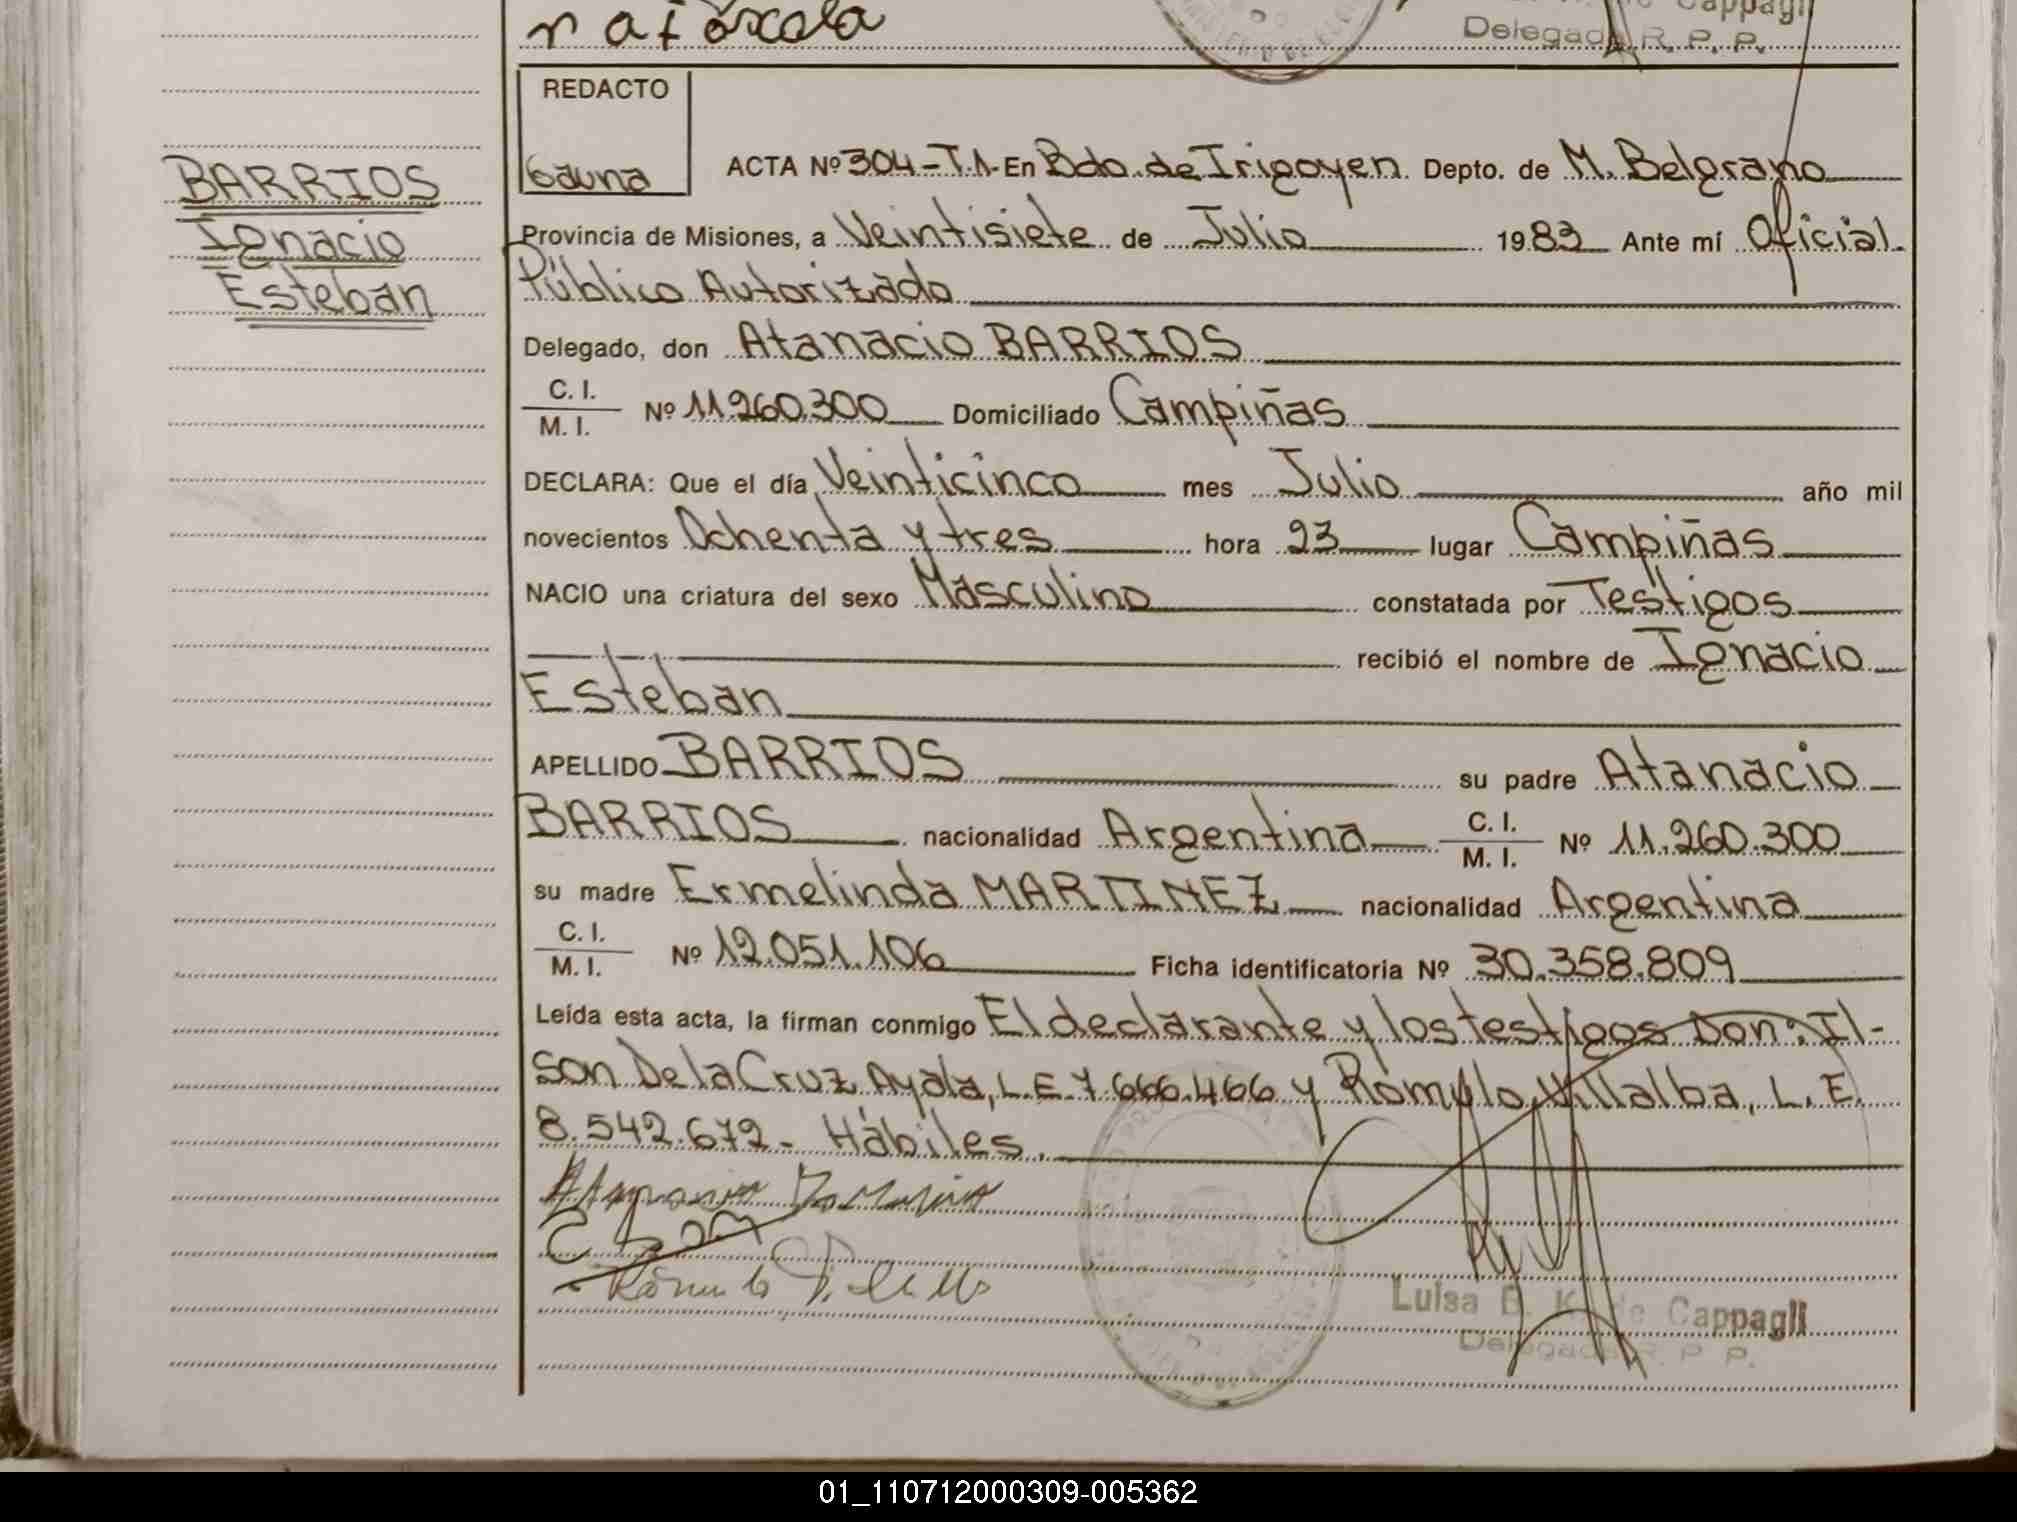 Cappagli
Delegada R. P. P.
REDACTO
Gauna
BARRIOS
Ignacio
Esteban
ACTA Nº 304-T.1. En Bdo. de Irigoyen. Depto. de M. Belgrano
Provincia de Misiones, a Veintisiete de Julio 1983 Ante mí Oficial
Público Autorizado
Delegado, don Atanacio BARRIOS
C. I.
M. I. Nº 11.260.300 Domiciliado Campiñas
DECLARA: Que el día Veinticinco mes Julio año mil
novecientos Ochenta y tres hora 23 lugar Campiñas
NACIO una criatura del sexo Masculino constatada por Testigos
recibió el nombre de Ignacio
Esteban
APELLIDO BARRIOS su padre Atanacio
BARRIOS nacionalidad Argentina C. I. M. I. Nº 11.260.300
su madre Ermelinda MARTINEZ nacionalidad Argentina
C. I.
M. I. Nº 12.051.106 Ficha identificatoria Nº 30.358.809
Leída esta acta, la firman conmigo El declarante y los testigos Don: Il-
son De la Cruz Ayala, L.E. 7.666.466 y Rómulo Villalba, L. E.
8.542.672- Hábiles.
Luisa B. K. de Cappagli
Delegada R. P. P.
01_110712000309-005362